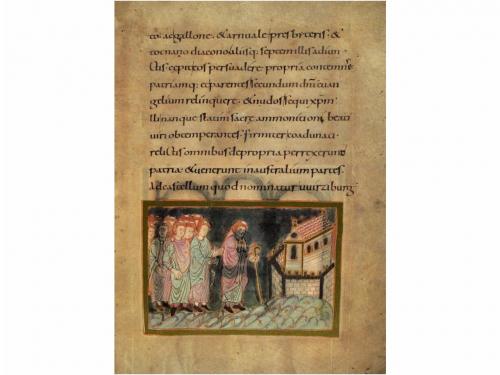 to. & gallone. & arnuale presbiteris. &
totnano diacono. aliisq; septem illis adiun
ctis. cepit eos persuadere propria contemnere
patriamq; et parentes secundum dnī euan
gelium relinquere. & nudos sequi xp̄m.
Illi nanque statim sacre ammonitioni beati
uiri obtemperantes. firmiter coadunati
relictis omnibus de propria perrexerunt
patria. & uenerunt in australium partes
ad castellum quod nominatur uuirziburg